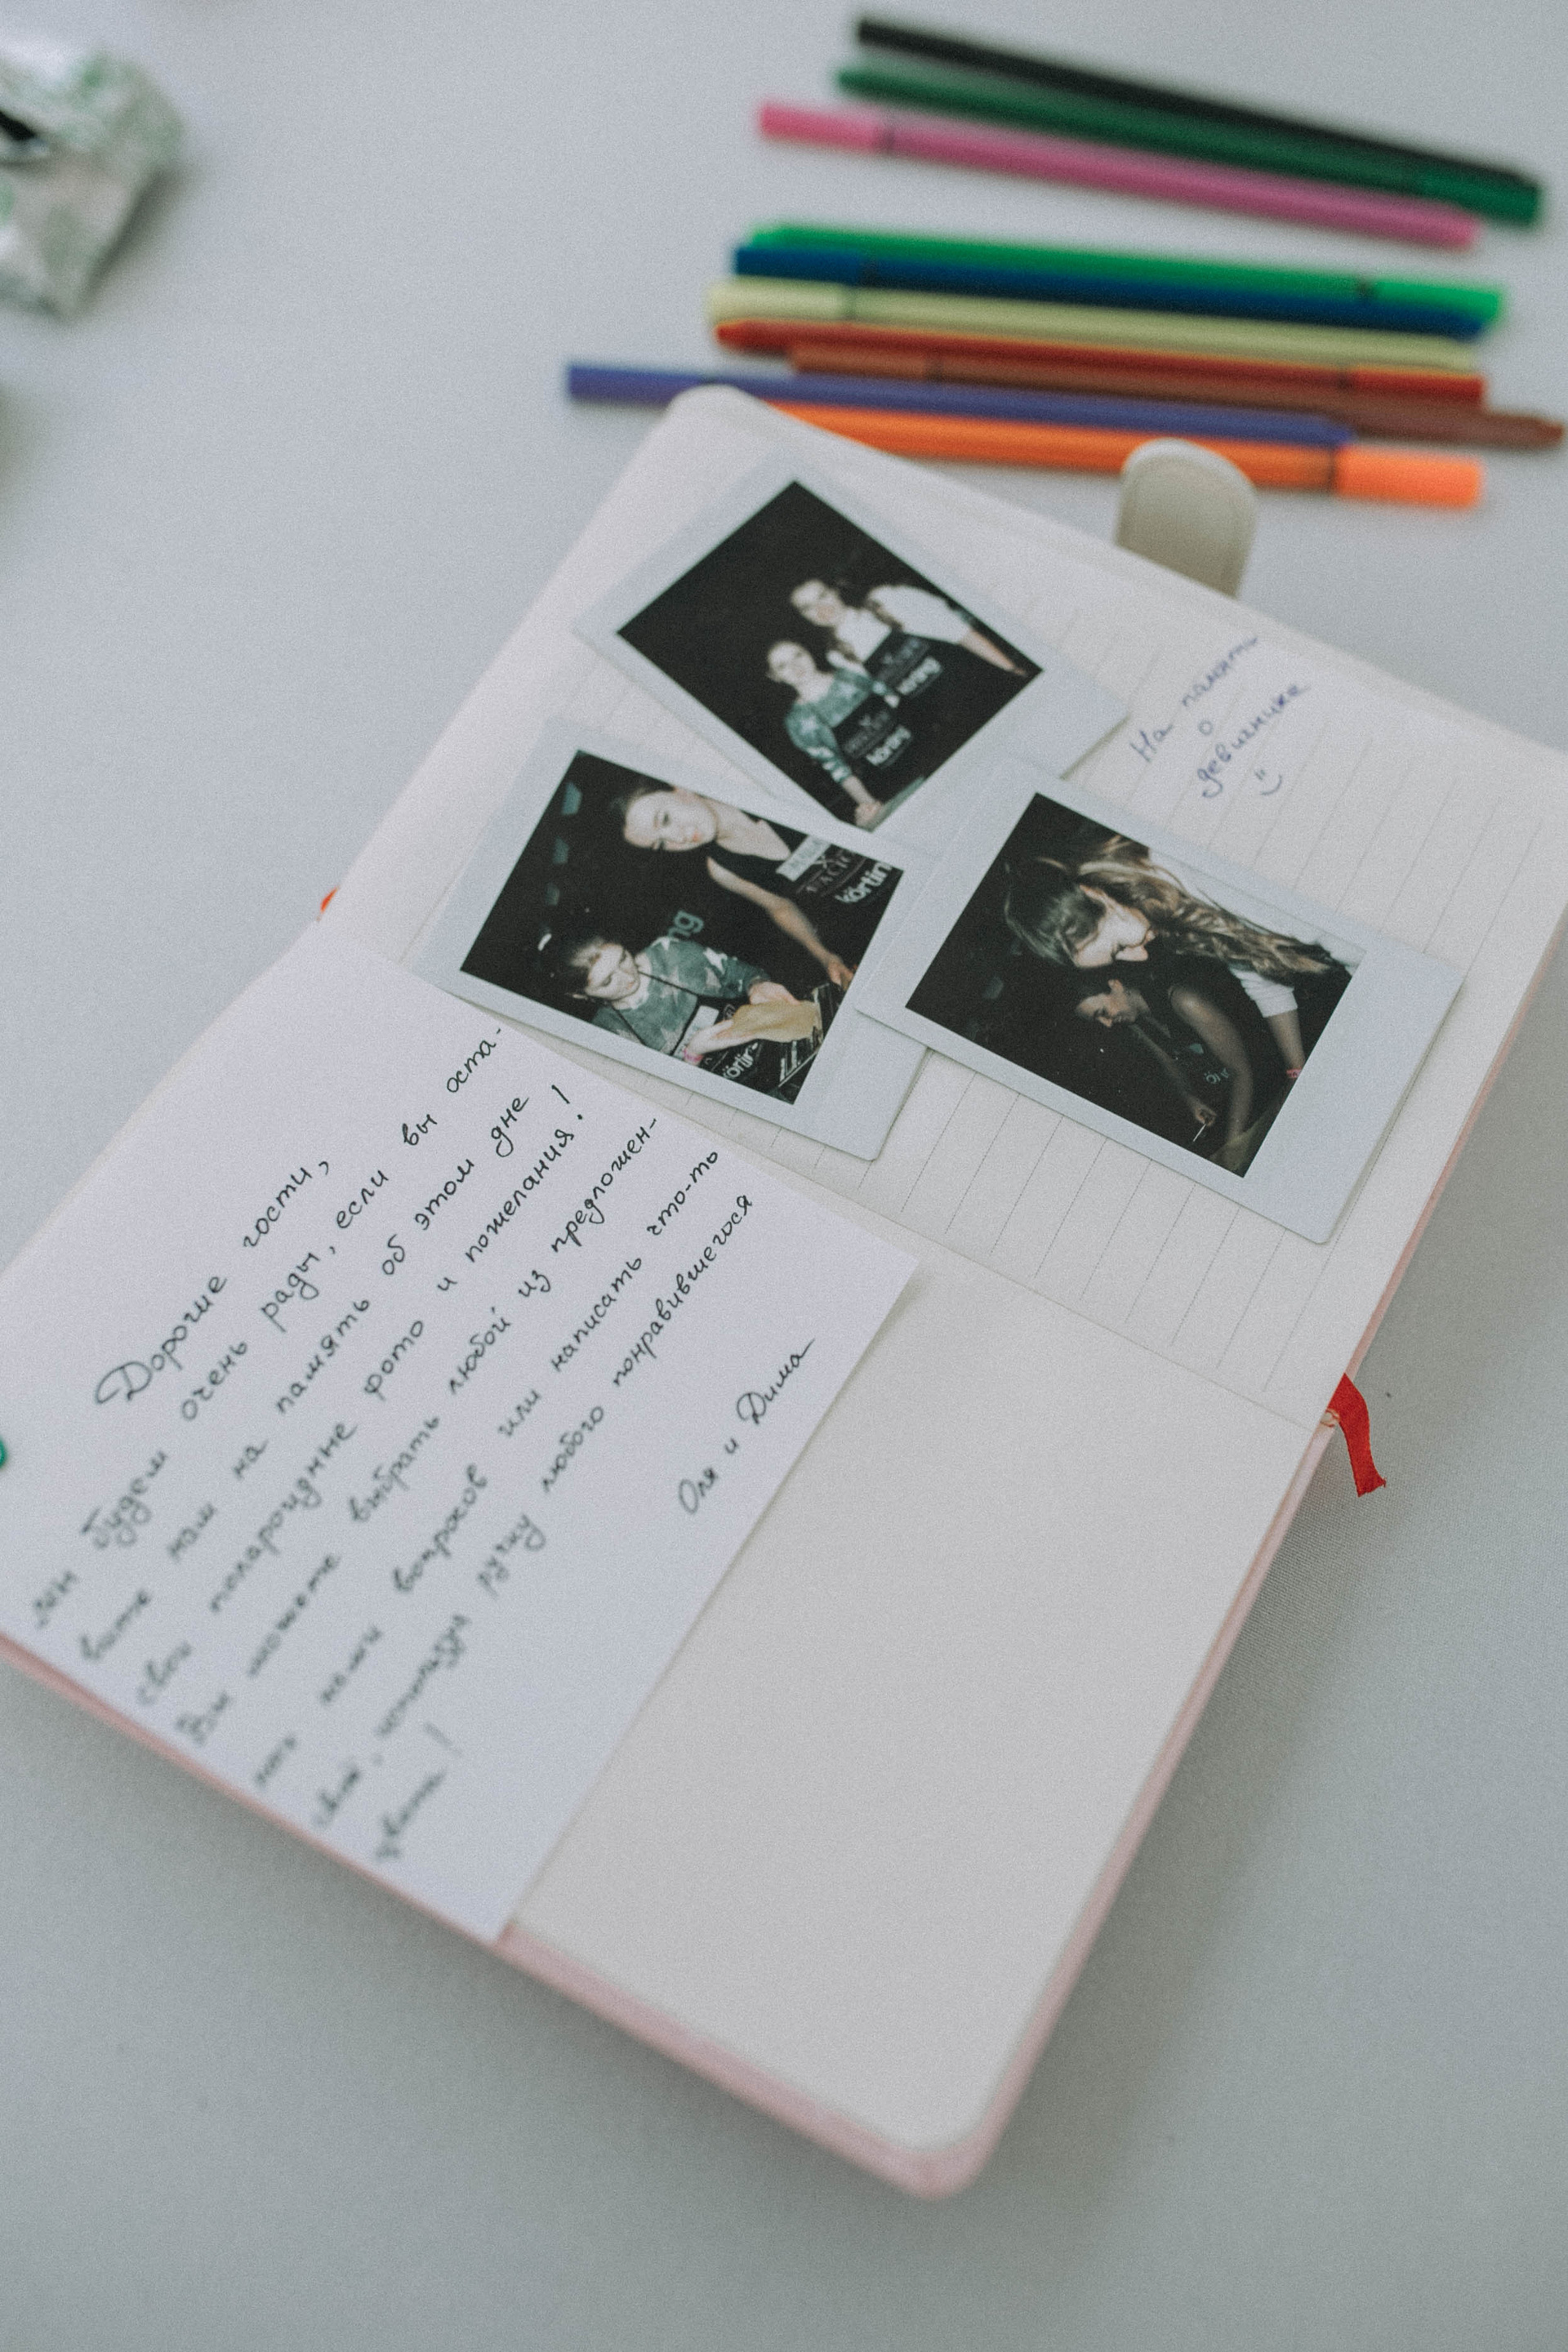 Дорогие гости,
мы будем очень рады, если вы оста-
вите нам на память об этом дне
свои полароидные фото и пожелания!
Вы можете выбрать любой из предложен-
ных нами вопросов или написать что-то
своё, используя ручку любого понравившегося
цвета!
Оля и Дима
На память
о
девичнике
körting
körting
körtin
ng
körtin